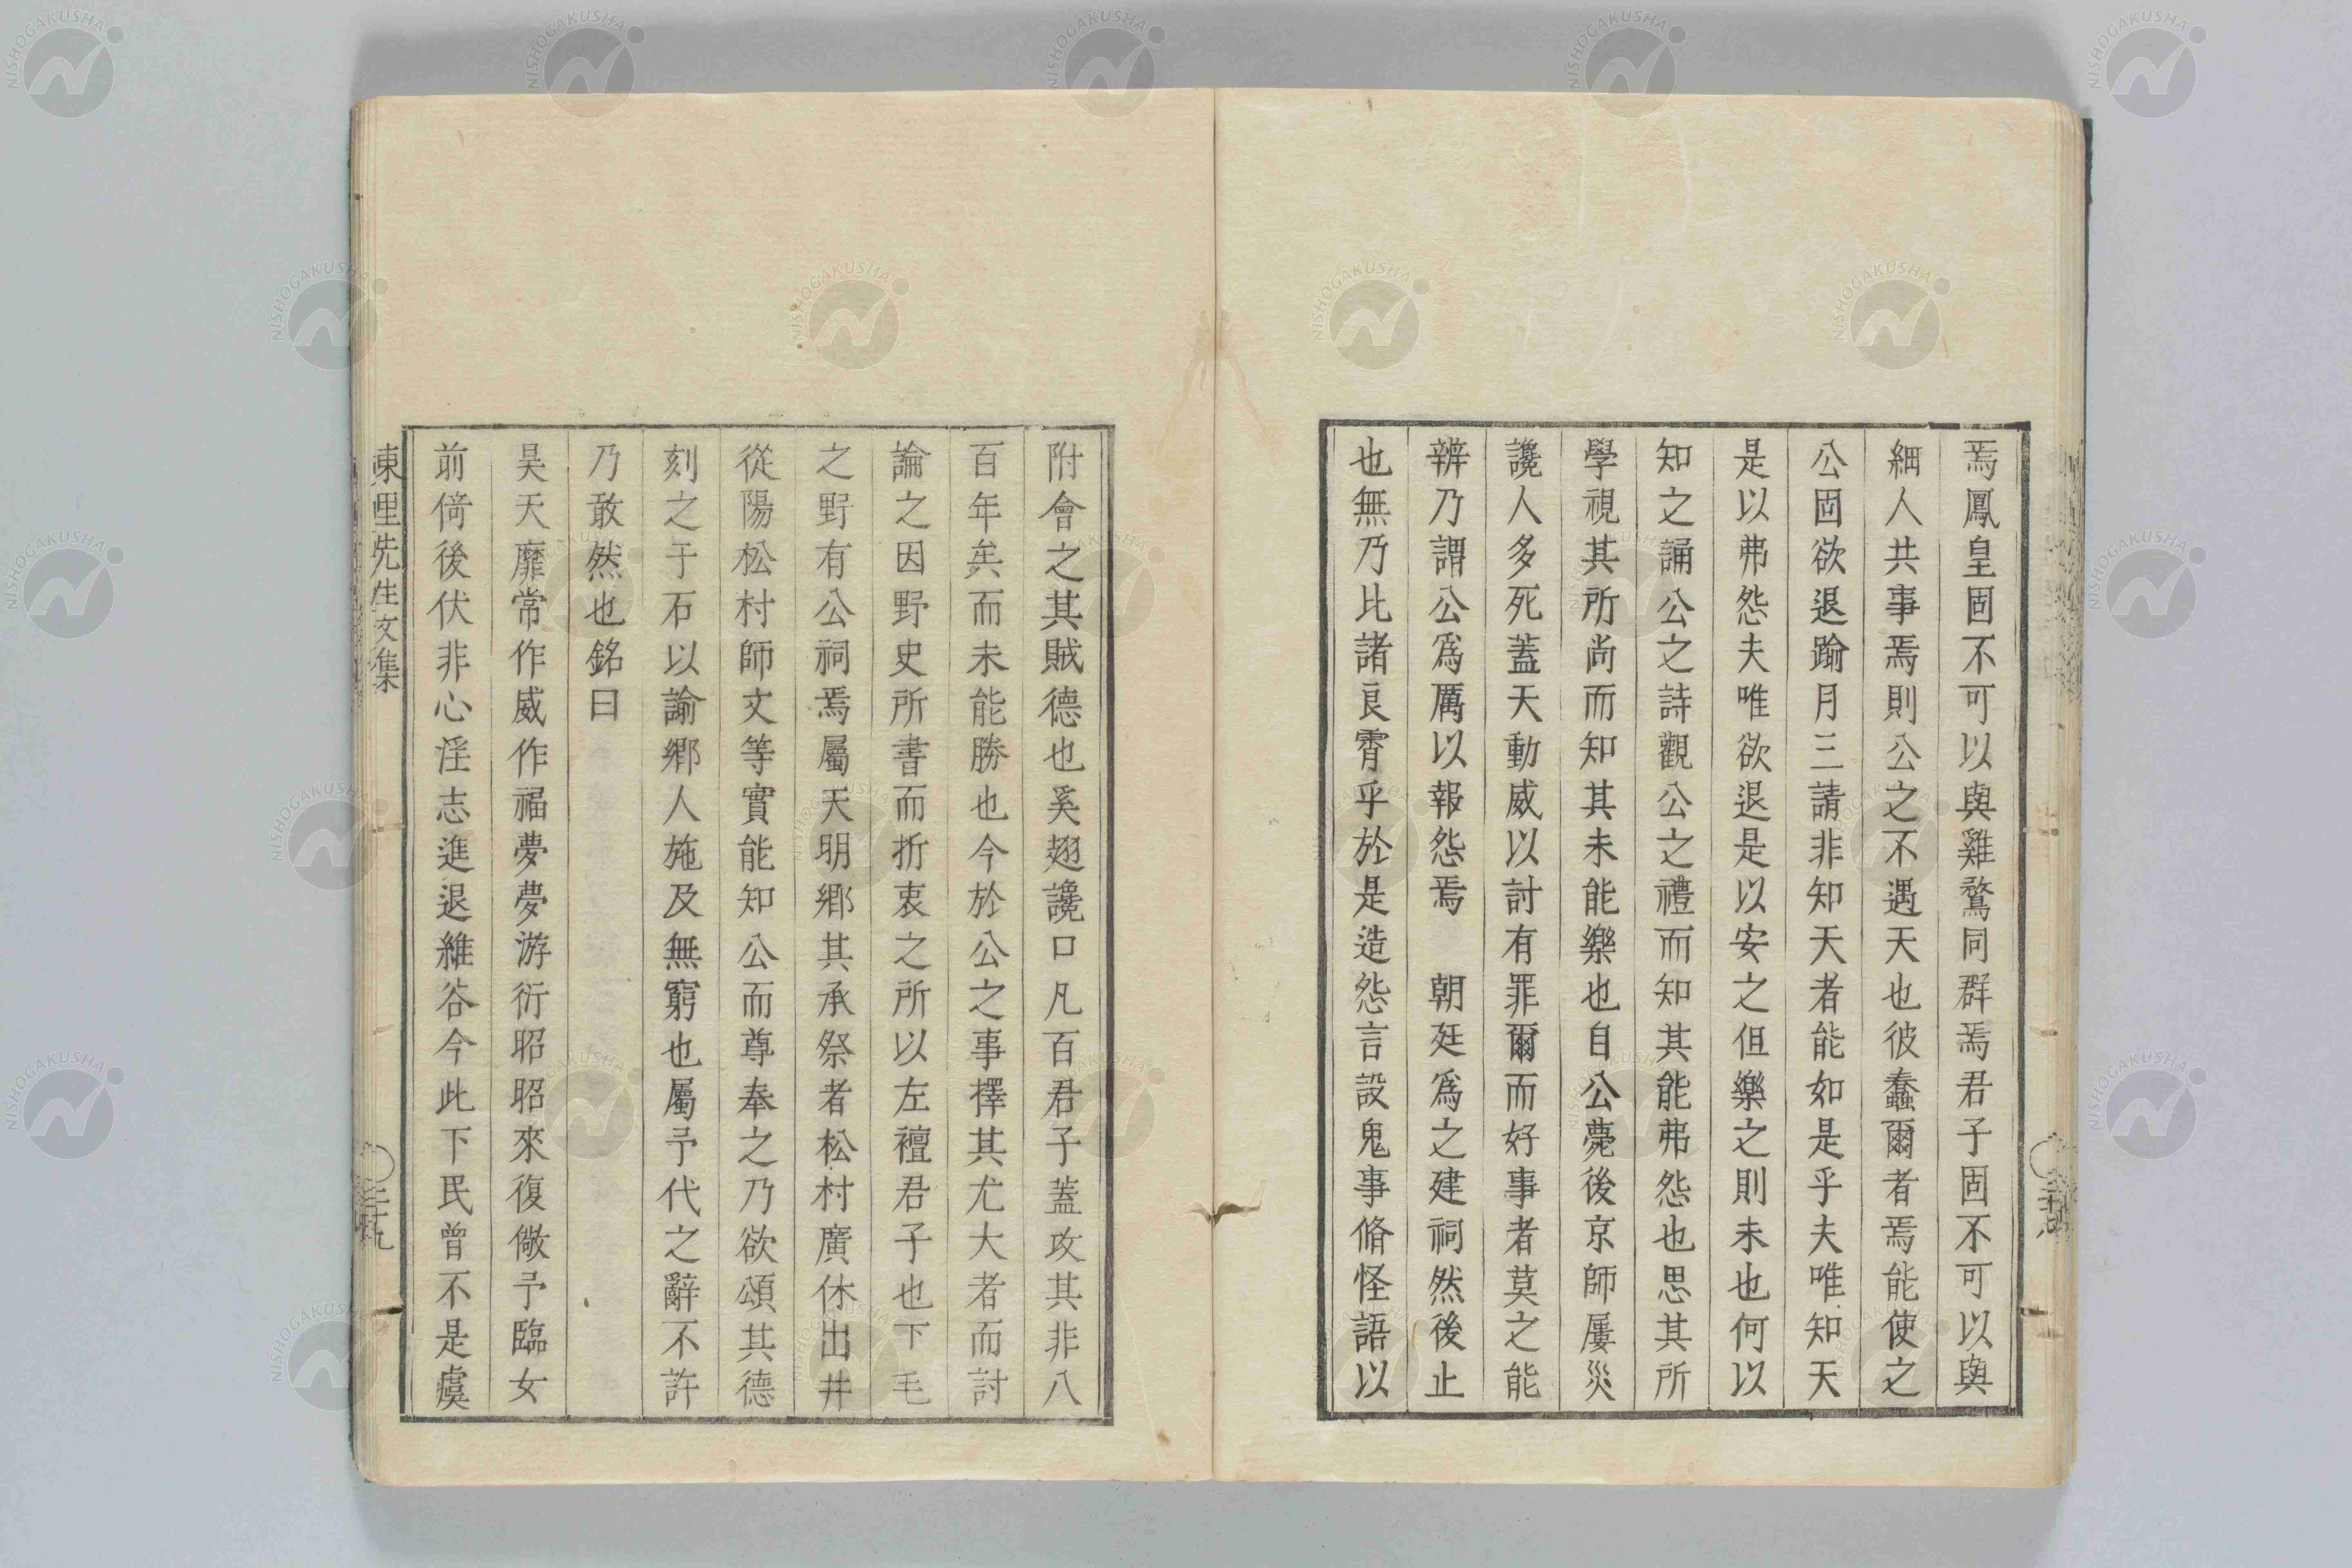 焉鳳皇固不可以與雞鶩同群焉君子固不可以與
細人共事焉則公之不遇天也彼蠢爾者焉能使之
公固欲退踰月三請非知天者能如是乎夫唯知天
是以弗怨夫唯欲退是以安之但樂之則未也何以
知之誦公之詩觀公之禮而知其能弗怨也思其所
學視其所尚而知其未能樂也自公薨後京師屢災
讒人多死蓋天動威以討有罪爾而好事者莫之能
辨乃謂公爲厲以報怨焉　朝廷爲之建祠然後止
也無乃比諸良霄乎於是造怨言設鬼事脩怪語以
附會之其賊德也奚翅讒口凡百君子蓋攻其非八
百年矣而未能勝也今於公之事擇其尤大者而討
論之因野史所書而折衷之所以左襢君子也下毛
之野有公祠焉屬天明鄉其承祭者松村廣休出井
從陽松村師文等實能知公而尊奉之乃欲頌其德
刻之于石以諭鄉人施及無窮也屬予代之辭不許
乃敢然也銘曰
昊天靡常作威作福夢夢游衍昭昭來復儆予臨女
前倚後伏非心淫志進退維谷今此下民曾不是虞
東里先生文集
三十九
NISHOGAKUSHA